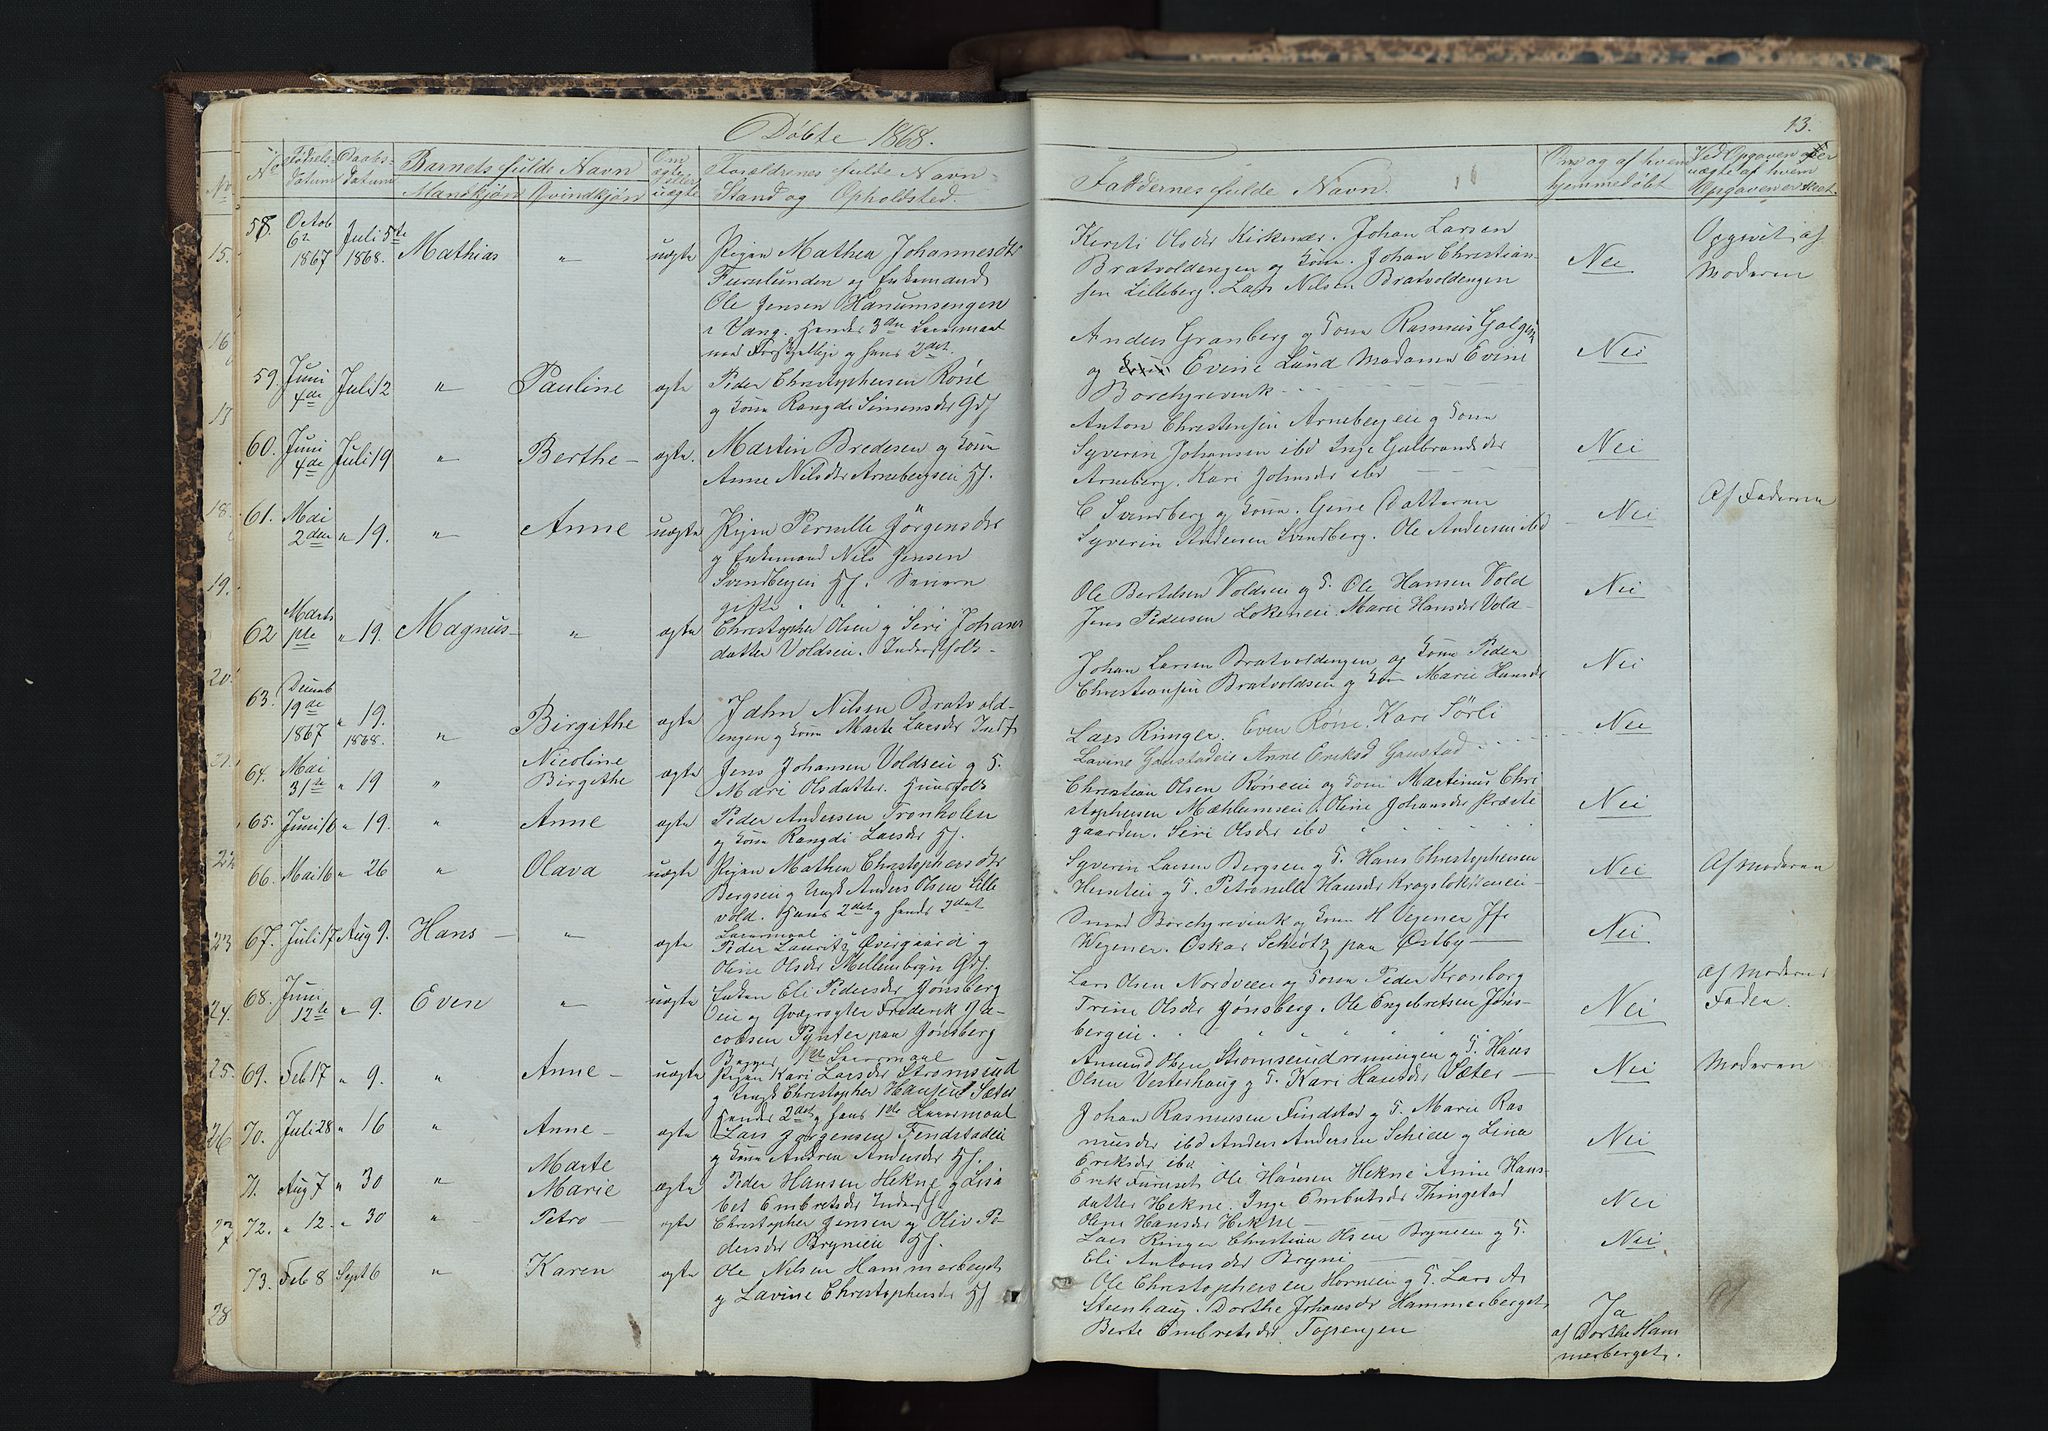 Döbte 1868.
13.
No
Fødsels-
datum
Daabs-
datum
Barnets fulde Navn
Mandkjøn Qvindkjøn
Om
ægte
eller
uægte
Forældrenes fulde Navn
Stand og Opholdsted.
Faddernes fulde Navn.
Om og af hvem
hjemmedøbt
Ved Opgaven over
uægte af hvem
Opgaven er skeet.
58. Octob
6te
1867
Juli 5te
1868.
Mathias " uægte
Pigen Mathea Johannesdtr
Furulunden og Enkemand
Ole Jensen Hanumsengen
i Vang. Hendes 3die Leiermaal
med Forskjellige og hans 2det.
Kersti Olsdtr Kirkenær. Johan Larsen
Bratvoldengen og Kone. Johan Christian-
sen Lilleberg. Lars Nilsen Bratvoldengen
Nei
Opgivet af
Moderen
59. Juni
4de
Juli 12 " Pauline ægte
Peder Christophersen Røne
og Kone Rangdi Simensdtr Gdf
Anders Granberg og Kone Rasmus Galgen
og Evine Lund Madame Evine
Borchgrevink
Nei
60. Juni
4de
Juli 19 " Berthe - ægte.
Martin Bredesen og Kone
Anne Nilsdtr Arnebergseie Hf.
Anton Christensen Arnebergeie og Kone
Syverin Johansen ibd Inge Gulbrandsdtr
Arneberg. Kari Johnsdtr ibd
Nei
61. Mai
2den
" 19. " Anne uægte
Pigen Pernille Jörgensdtr
og Enkemand Nils Jensen
Svendbergen Hf. Senere
gifte
C Svendberg og Kone. Gine (Datteren
Syverin Andersen Svendberg. Ole Andersen ibd
Nei
Af Faderen
62 Marts
" 19. Magnus - " ægte
Christopher Olsen og Siri Johans
datter Voldseie. Inderstfolk -
Ole Bertelsen Voldseie og K. Ole Hansen Vold
Jens Pedersen Lökeneie Marie Hansdtr Vold -
Nei
63. Decemb
19de
1867
" 19.
1868.
" Birgithe ægte
John Nilsen Bratvold-
engen og Kone Marte Larsdtr Indf
Johan Larsen Bratvoldengen og Kone Peder
Christiansen Bratvoldseie og Kone Marie Hansdtr
Nei
64. Mai
31te
" 19 " Nicoline
Birgithe ægte
Jens Johansen Voldseie og K.
Mari Olsdatter. Huusfolk
Lars Ringer. Even Røne. Kari Sörli
Lavine Gaustadeie Anne Eriksd Gaustad
Nei
65. Juni 16 " 19. " Anne ægte
Peder Andersen Tronholen
og Kone Rangdi Larsdtr Hf.
Christian Olsen Röneeie og Kone Martinus Chri
stophersen Mæhlumseie. Oline Johansdtr Præste
gaarden. Siri Olsdtr ibd
Nei
66. Mai 16 " 26 " Olava uægte
Pigen Mathea Christophersdtr
Bergseie og Ungk Anders Olsen Lille
vold. Hans 2det og hendes 2det
Leiermaal
Syverin Larsen Bergseie og K. Hans Christophersen
og K. Petronille Hansdtr
Nei
Af Moderen
67. Juli 17 Aug 9. Hans - " ægte
Peder Lauritz Øvergaard og
Oline Olsdtr Mellembryn Gdf.
Smed Borchgrevink og Kone H Vegener Jfr
Wegener. Oskar Schiötz paa Østby
Nei
68. Juni
12te
" 9. Even " uægte
Enken Eli Pedersdtr Jønsberg
eie og Qvægrøgter Frederik Ja-
cobsen Pynter paa Jønsberg
Begges 1ste Leiermaal
Lars Olsen Nordveien og Kone Peder Kronborg
Trine Olsdtr Jønsberg. Ole Engebretsen Jöns-
bergeie.
Nei
Af Moderen
Faden.
69. Feb 17 " 9. " Anne - uægte
Pigen Kari Larsdtr Stromsrud
og Ungk Christopher Hansen Sæter
Hendes 2det og hans 1ste Leiermaal
Amund Olsen Strömsrudrønningen og K. Hans
Olsen Vesterhaug og K. Kari Hansdtr Sæter
Nei
Moderen
70. Juli 28 " 16 " Anne - ægte
Lars Jørgensen Findstadeie
og Kone Andrea Andersdtr Hf.
Johan Rasmussen Findstad og K. Marie Ras
musdtr ibd Anders Andersen Schieie og Lina
Eriksdtr ibd
Nei
71. Aug 7 " 30 " Marte
Marie ægte
Peder Hansen Hekne og Lisa
bet Embretsdtr Inderstf
Erik Furuset Ole Hansen Hekne Anne Hans-
datter Hekne. Inge Embretsdtr Thingstad
Oline Hansdtr Hekne
Nei
72. " 12 " 30 " Petra - ægte
Christopher Jensen og Oliv Pe-
dersdtr Bryneie Hf.
Lars Ringer Christian Olsen Bryneie og K.
Eli Antonsdtr Bryni
Nei
73. Feb 8 Sept 6 " Karen ægte
Ole Nilsen Hammerberget
og Lavine Christophersdtr Hf
Ole Christophersen Horneie og K. Lars A.
Steenhaug. Dorthe Johansdtr Hammerberget.
Berte Embretsdtr Topengen
Ja
af Dorthe Ham
merberget.
15.
16
17
18.
19.
20.
21.
22
23
24.
25.
26
27
28